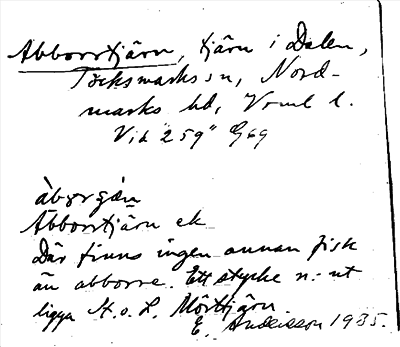 Abborrtjärn, tjärn i Dalen,
Töcksmarks sn, Nord-
marks hd, Vrml l.
Vid 259" G69
àbɷrʂæ̀n
Abborrtjärn ek
Där finns ingen annan fisk
än abborre. Ett stycke n: ut
ligga St. o. L. Mörttjärn
E. Andersson 1935.